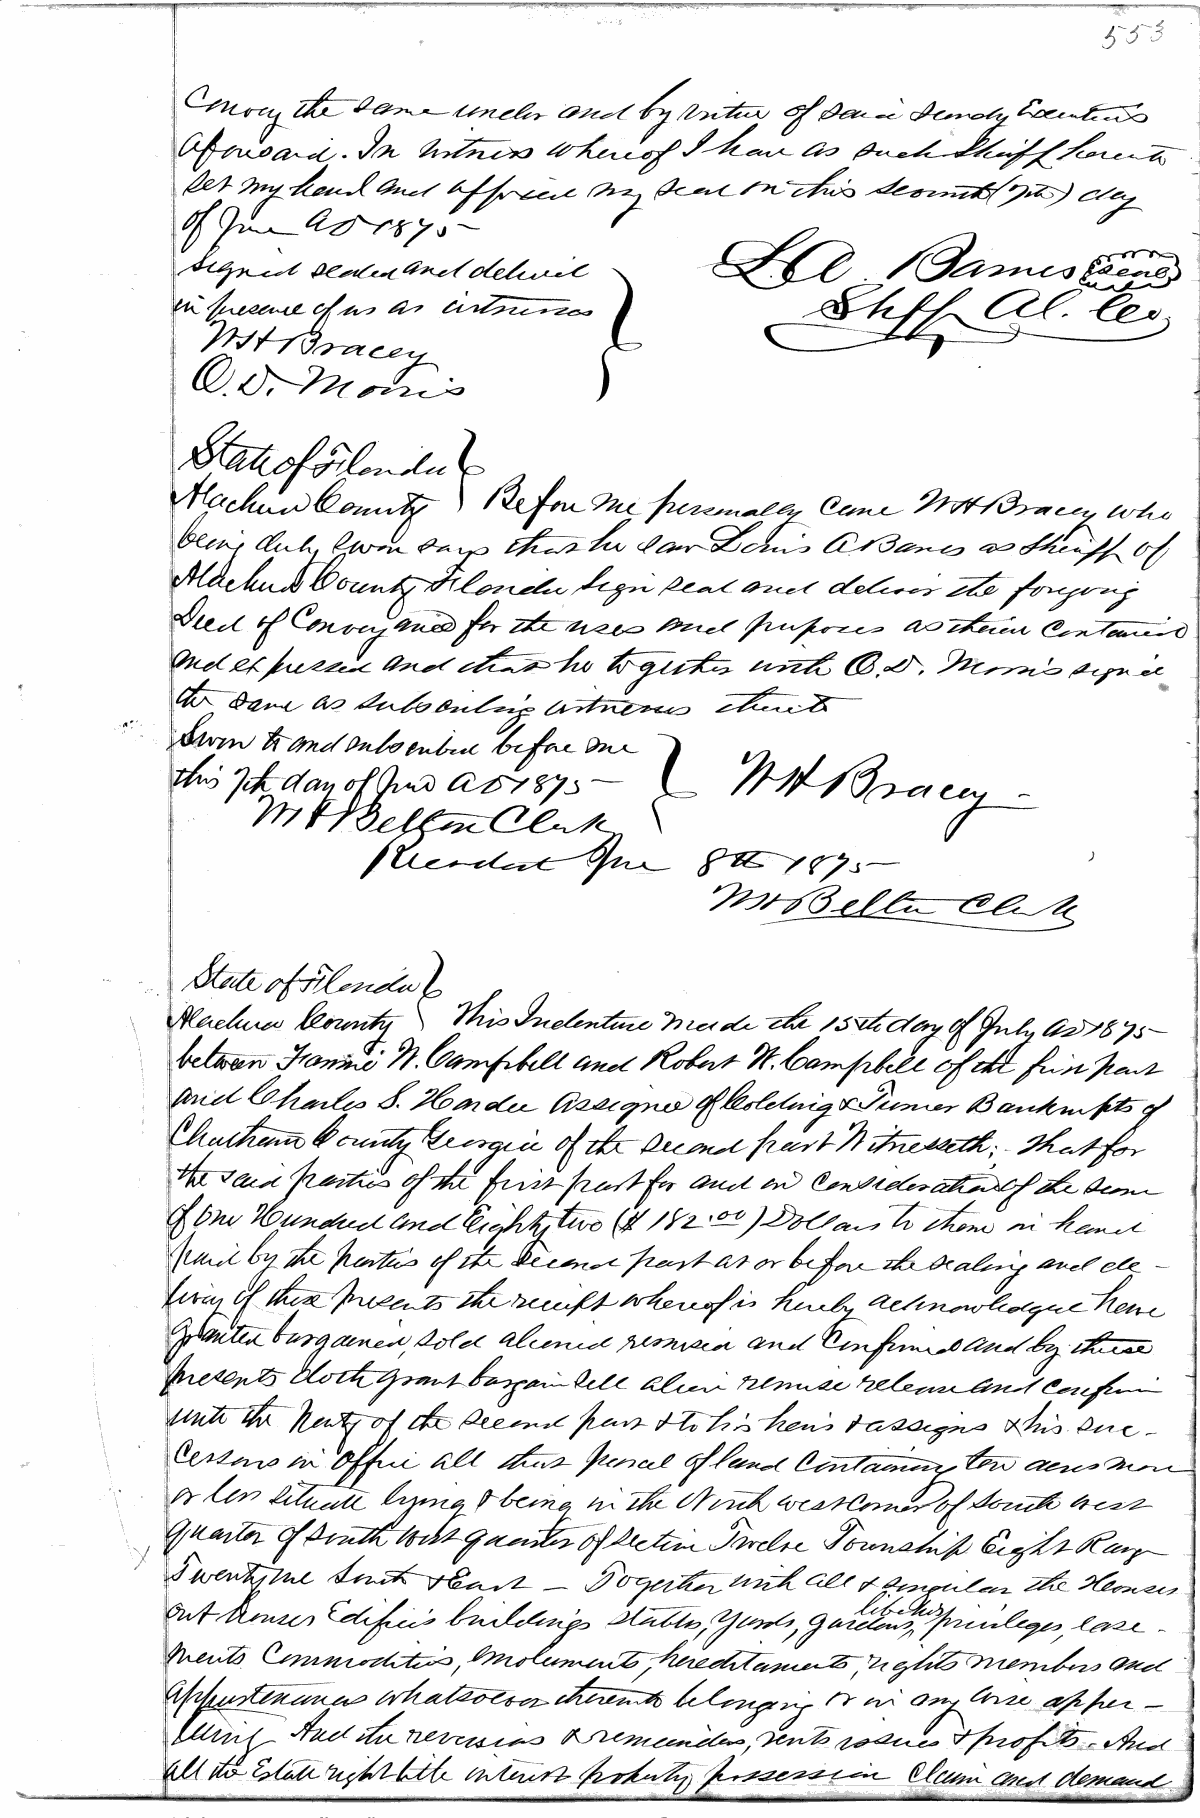 553
Convey the same under and by virtue of said sundry Executions
aforesaid. In witness whereof I have as such Sheriff hereto
set my hand and affixed my seal on this seventh (7th) day
of June AD 1875
Signed sealed and delivd
in presence of us as witnesses
L. A. Barnes Seal
Shff Al. Co.
W H Bracey
O. D. Morris
State of Florida
Alachua County Before me personally came W H Bracey who
being duly sworn says that he saw Louis A Barnes as Sheriff of
Alachua County Florida sign seal and deliver the foregoing
Deed of Conveyance for the uses and purposes as therein contained
and expressed and that he together with O. D. Morris signed
the same as subscribing witnesses thereto
Sworn to and subscribed before me
this 7th day of June AD 1875
W H Bracey
Belton Clerk
Recorded June 8th 1875
Belton Clerk
State of Florida
Alachua County This Indenture made the 15th day of July AD 1875
between Fannie W. Campbell and Robert W. Campbell of the first part
and Charles S. Hardee Assignee of Colding & Turner Bankrupts of
Chatham County Georgia of the second part Witnesseth; that for
the said parties of the first part for and in consideration of the sum
of One Hundred and Eighty two ($182.00) Dollars to them in hand
paid by the parties of the second part at or before the sealing and de-
livery of these presents the receipt whereof is hereby acknowledged have
granted bargained, sold aliened remised and confirmed and by these
presents doth grant bargain sell alien remise release and confirm
unto the party of the second part & to his heirs & assigns & his suc-
cessors in office all that parcel of land containing ten acres more
or less situate lying & being in the North west corner of South west
quarter of South West quarter of Section Twelve Township Eight Range
Twenty one South & East - Together with all & singular the Houses
out houses Edifices buildings stables, yards, gardens, liberties, privileges, ease-
ments Commodities, emoluments, hereditaments, rights members and
appurtenances whatsoever thereunto belonging or in any wise apper-
taining And the reversions & remainders, rents issues & profits. And
all the Estate right title interest property, possession claim and demand